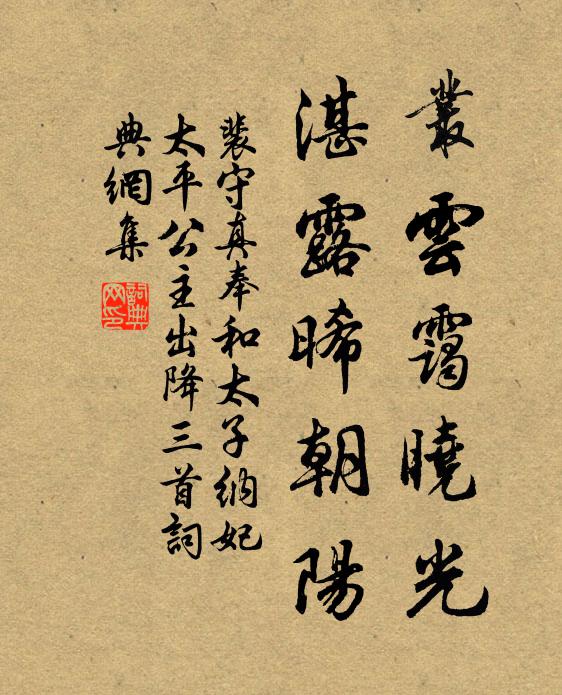 叢雲靄曉光
湛露晞朝陽
裴守真奉和太子納妃
太平公主出降三首詞
典網集
詞典
网印